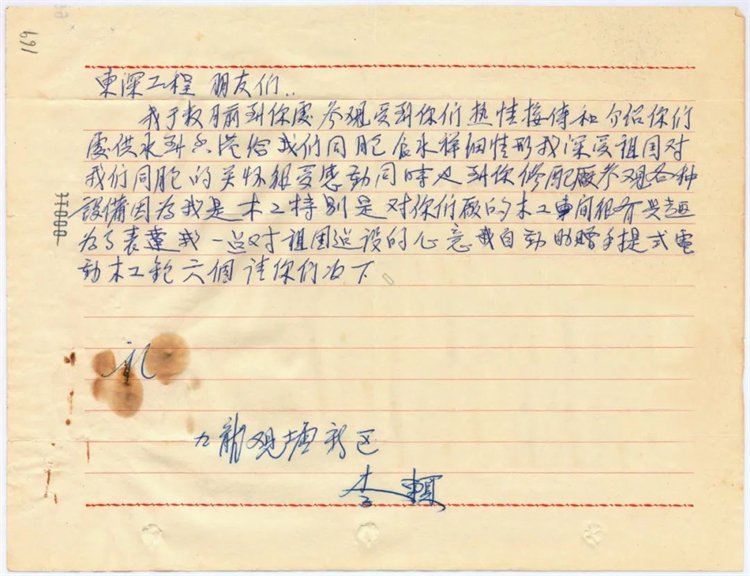 169
東深工程 朋友们..
我于数月前到你處参观受到你们热性接待和介绍你们
處供水到香港给我们同胞食水祥细情形我深受祖国对
我们同胞的关怀很受感动同時也到你修配廠参观各种
設備因為我是木工特别是对你们廠的木工車间很有兴趣
為了表達我一点对祖国建设的心意我自动助赠手提式電
動木工鉋六個请你们收下。
礼
九龍观塘新区
李輝